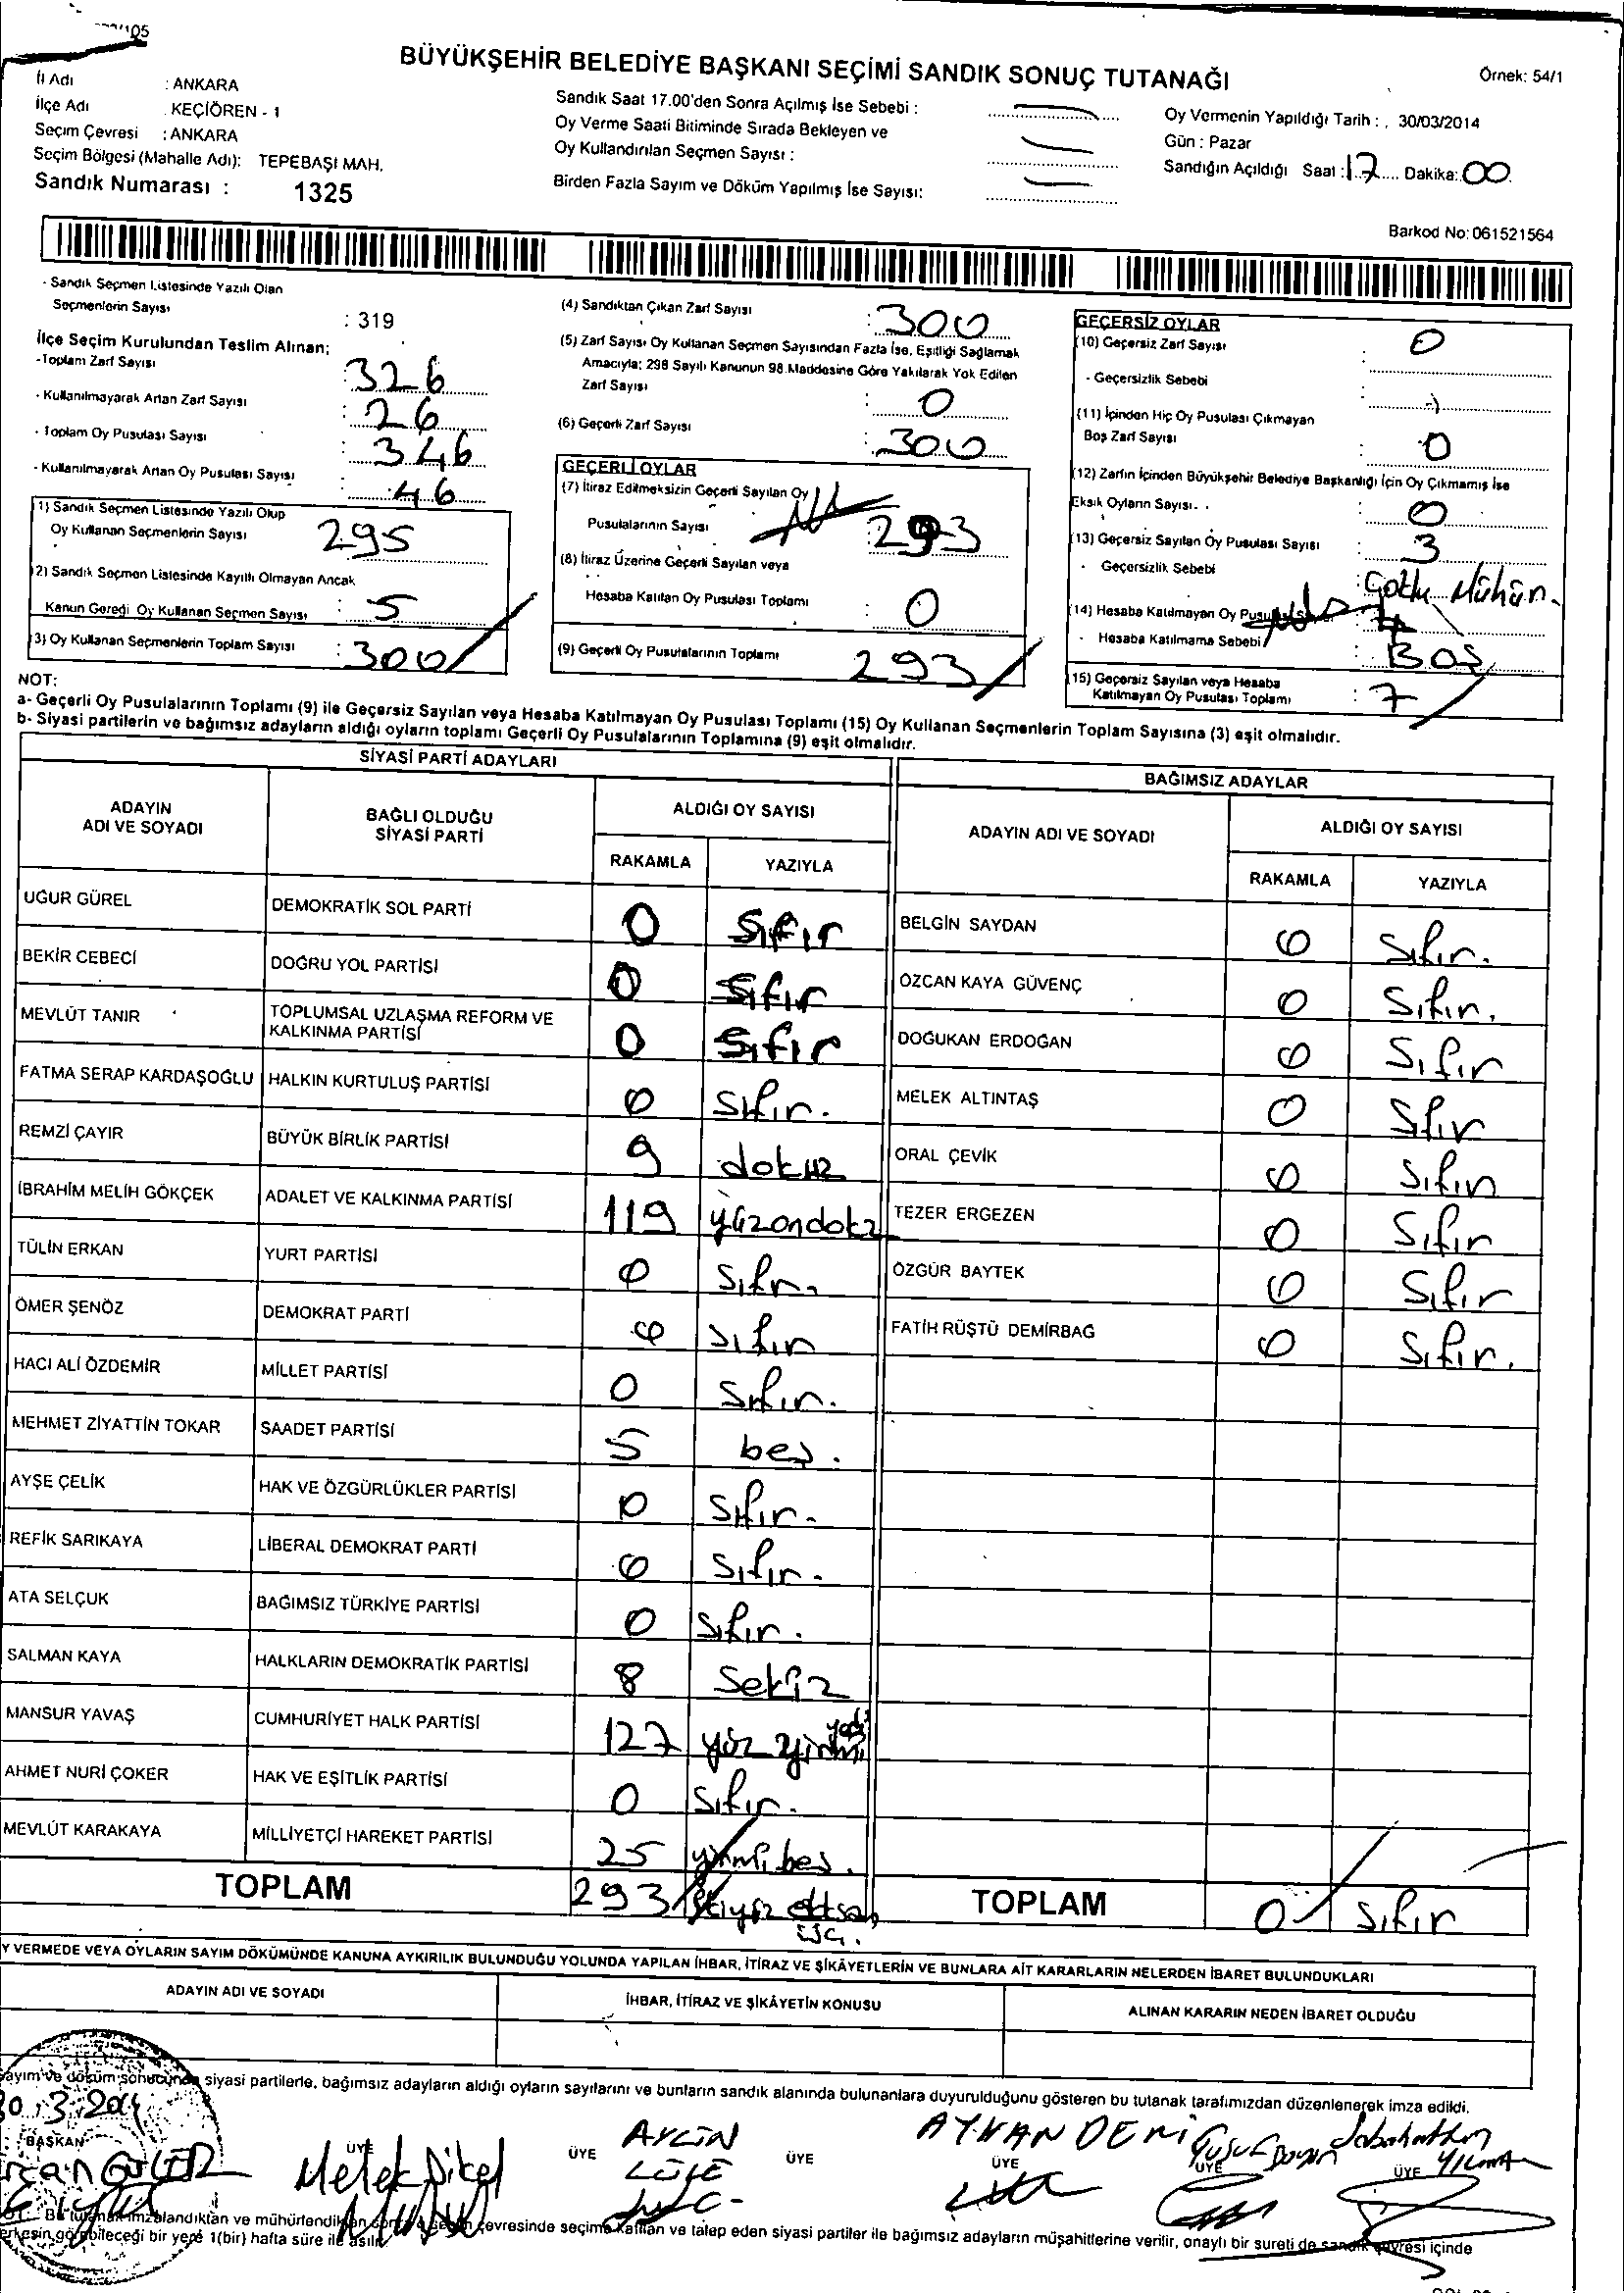 BÜYÜKŞEHİR BELEDİYE BAŞKANI SEÇİMİ SANDIK SONUÇ TUTANAĞI
Örnek: 54/1
İl Adı : ANKARA
İlçe Adı : KEÇİÖREN - 1
Seçim Çevresi : ANKARA
Seçim Bölgesi (Mahalle Adı): TEPEBAŞI MAH.
Sandık Numarası : 1325
Sandık Saat 17.00'den Sonra Açılmış İse Sebebi :
Oy Verme Saati Bitiminde Sırada Bekleyen ve
Oy Kullandırılan Seçmen Sayısı :
Birden Fazla Sayım ve Döküm Yapılmış İse Sayısı:
Oy Vermenin Yapıldığı Tarih : , 30/03/2014
Gün : Pazar
Sandığın Açıldığı Saat : 17 Dakika: 00
Barkod No: 061521564
- Sandık Seçmen Listesinde Yazılı Olan
Seçmenlerin Sayısı : 319
İlçe Seçim Kurulundan Teslim Alınan;
- Toplam Zarf Sayısı : 326
- Kullanılmayarak Artan Zarf Sayısı : 26
- Toplam Oy Pusulası Sayısı : 346
- Kullanılmayarak Artan Oy Pusulası Sayısı : 46
(1) Sandık Seçmen Listesinde Yazılı Olup
Oy Kullanan Seçmenlerin Sayısı 295
(2) Sandık Seçmen Listesinde Kayıtlı Olmayan Ancak
Kanun Gereği Oy Kullanan Seçmen Sayısı : 5
(3) Oy Kullanan Seçmenlerin Toplam Sayısı : 300
(4) Sandıktan Çıkan Zarf Sayısı : 300
(5) Zarf Sayısı Oy Kullanan Seçmen Sayısından Fazla İse, Eşitliği Sağlamak
Amacıyla; 298 Sayılı Kanunun 98.Maddesine Göre Yakılarak Yok Edilen
Zarf Sayısı : 0
(6) Geçerli Zarf Sayısı : 300
GEÇERLİ OYLAR
(7) İtiraz Edilmeksizin Geçerli Sayılan Oy
Pusulalarının Sayısı : 293
(8) İtiraz Üzerine Geçerli Sayılan veya
Hesaba Katılan Oy Pusulası Toplamı : 0
(9) Geçerli Oy Pusulalarının Toplamı 293
GEÇERSİZ OYLAR
(10) Geçersiz Zarf Sayısı : 0
- Geçersizlik Sebebi :
(11) İçinden Hiç Oy Pusulası Çıkmayan
Boş Zarf Sayısı : 0
(12) Zarfın İçinden Büyükşehir Belediye Başkanlığı İçin Oy Çıkmamış İse
Eksik Oyların Sayısı 0
(13) Geçersiz Sayılan Oy Pusulası Sayısı : 3
- Geçersizlik Sebebi : Çoklu Mühür.
(14) Hesaba Katılmayan Oy : 4
- Hesaba Katılmama Sebebi : BOŞ
(15) Geçersiz Sayılan veya Hesaba
Katılmayan Oy Pusulası Toplamı : 7
NOT:
a- Geçerli Oy Pusulalarının Toplamı (9) ile Geçersiz Sayılan veya Hesaba Katılmayan Oy Pusulası Toplamı (15) Oy Kullanan Seçmenlerin Toplam Sayısına (3) eşit olmalıdır.
b- Siyasi partilerin ve bağımsız adayların aldığı oyların toplamı Geçerli Oy Pusulalarının Toplamına (9) eşit olmalıdır.
SİYASİ PARTİ ADAYLARI
ADAYIN ADI VE SOYADI BAĞLI OLDUĞU SİYASİ PARTİ ALDIĞI OY SAYISI
RAKAMLA YAZIYLA
UĞUR GÜREL DEMOKRATİK SOL PARTİ 0 Sıfır
BEKİR CEBECİ DOĞRU YOL PARTİSİ 0 Sıfır
MEVLÜT TANIR TOPLUMSAL UZLAŞMA REFORM VE KALKINMA PARTİSİ 0 Sıfır
FATMA SERAP KARDAŞOĞLU HALKIN KURTULUŞ PARTİSİ 0 Sıfır.
REMZİ ÇAYIR BÜYÜK BİRLİK PARTİSİ 9 dokuz
İBRAHİM MELİH GÖKÇEK ADALET VE KALKINMA PARTİSİ 119 yüzondokz
TÜLİN ERKAN YURT PARTİSİ 0 Sıfır.
ÖMER ŞENÖZ DEMOKRAT PARTİ 0 Sıfır
HACI ALİ ÖZDEMİR MİLLET PARTİSİ 0 Sıfır.
MEHMET ZİYATTİN TOKAR SAADET PARTİSİ 5 beş.
AYŞE ÇELİK HAK VE ÖZGÜRLÜKLER PARTİSİ 0 Sıfır.
REFİK SARIKAYA LİBERAL DEMOKRAT PARTİ 0 Sıfır.
ATA SELÇUK BAĞIMSIZ TÜRKİYE PARTİSİ 0 Sıfır.
SALMAN KAYA HALKLARIN DEMOKRATİK PARTİSİ 8 Sekiz
MANSUR YAVAŞ CUMHURİYET HALK PARTİSİ 127 yüz yirmi yedi
AHMET NURİ ÇOKER HAK VE EŞİTLİK PARTİSİ 0 Sıfır.
MEVLÜT KARAKAYA MİLLİYETÇİ HAREKET PARTİSİ 25 yirmi beş.
TOPLAM 293 ikiyüz doksan üç.
BAĞIMSIZ ADAYLAR
ADAYIN ADI VE SOYADI ALDIĞI OY SAYISI
RAKAMLA YAZIYLA
BELGİN SAYDAN 0 Sıfır.
ÖZCAN KAYA GÜVENÇ 0 Sıfır.
DOĞUKAN ERDOĞAN 0 Sıfır
MELEK ALTINTAŞ 0 Sıfır
ORAL ÇEVİK 0 Sıfır
TEZER ERGEZEN 0 Sıfır
ÖZGÜR BAYTEK 0 Sıfır
FATİH RÜŞTÜ DEMİRBAĞ 0 Sıfır.
TOPLAM 0 Sıfır
Y VERMEDE VEYA OYLARIN SAYIM DÖKÜMÜNDE KANUNA AYKIRILIK BULUNDUĞU YOLUNDA YAPILAN İHBAR, İTİRAZ VE ŞİKÂYETLERİN VE BUNLARA AİT KARARLARIN NELERDEN İBARET BULUNDUKLARI
ADAYIN ADI VE SOYADI İHBAR, İTİRAZ VE ŞİKÂYETİN KONUSU ALINAN KARARIN NEDEN İBARET OLDUĞU
ayım ve döküm sonucunda siyasi partilerle, bağımsız adayların aldığı oyların sayılarını ve bunların sandık alanında bulunanlara duyurulduğunu gösteren bu tutanak tarafımızdan düzenlenerek imza edildi.
BAŞKAN ÜYE ÜYE ÜYE ÜYE ÜYE ÜYE
Melek Dikel AYLİN AYKAN DEMİ Yusuf Sabahattin YILMA
imzalandıktan ve mühürlendikten çevresinde seçime katılan ve talep eden siyasi partiler ile bağımsız adayların müşahitlerine verilir, onaylı bir sureti de sandık çevresi içinde
erkesin görebileceği bir yere 1(bir) hafta süre ile asılır.